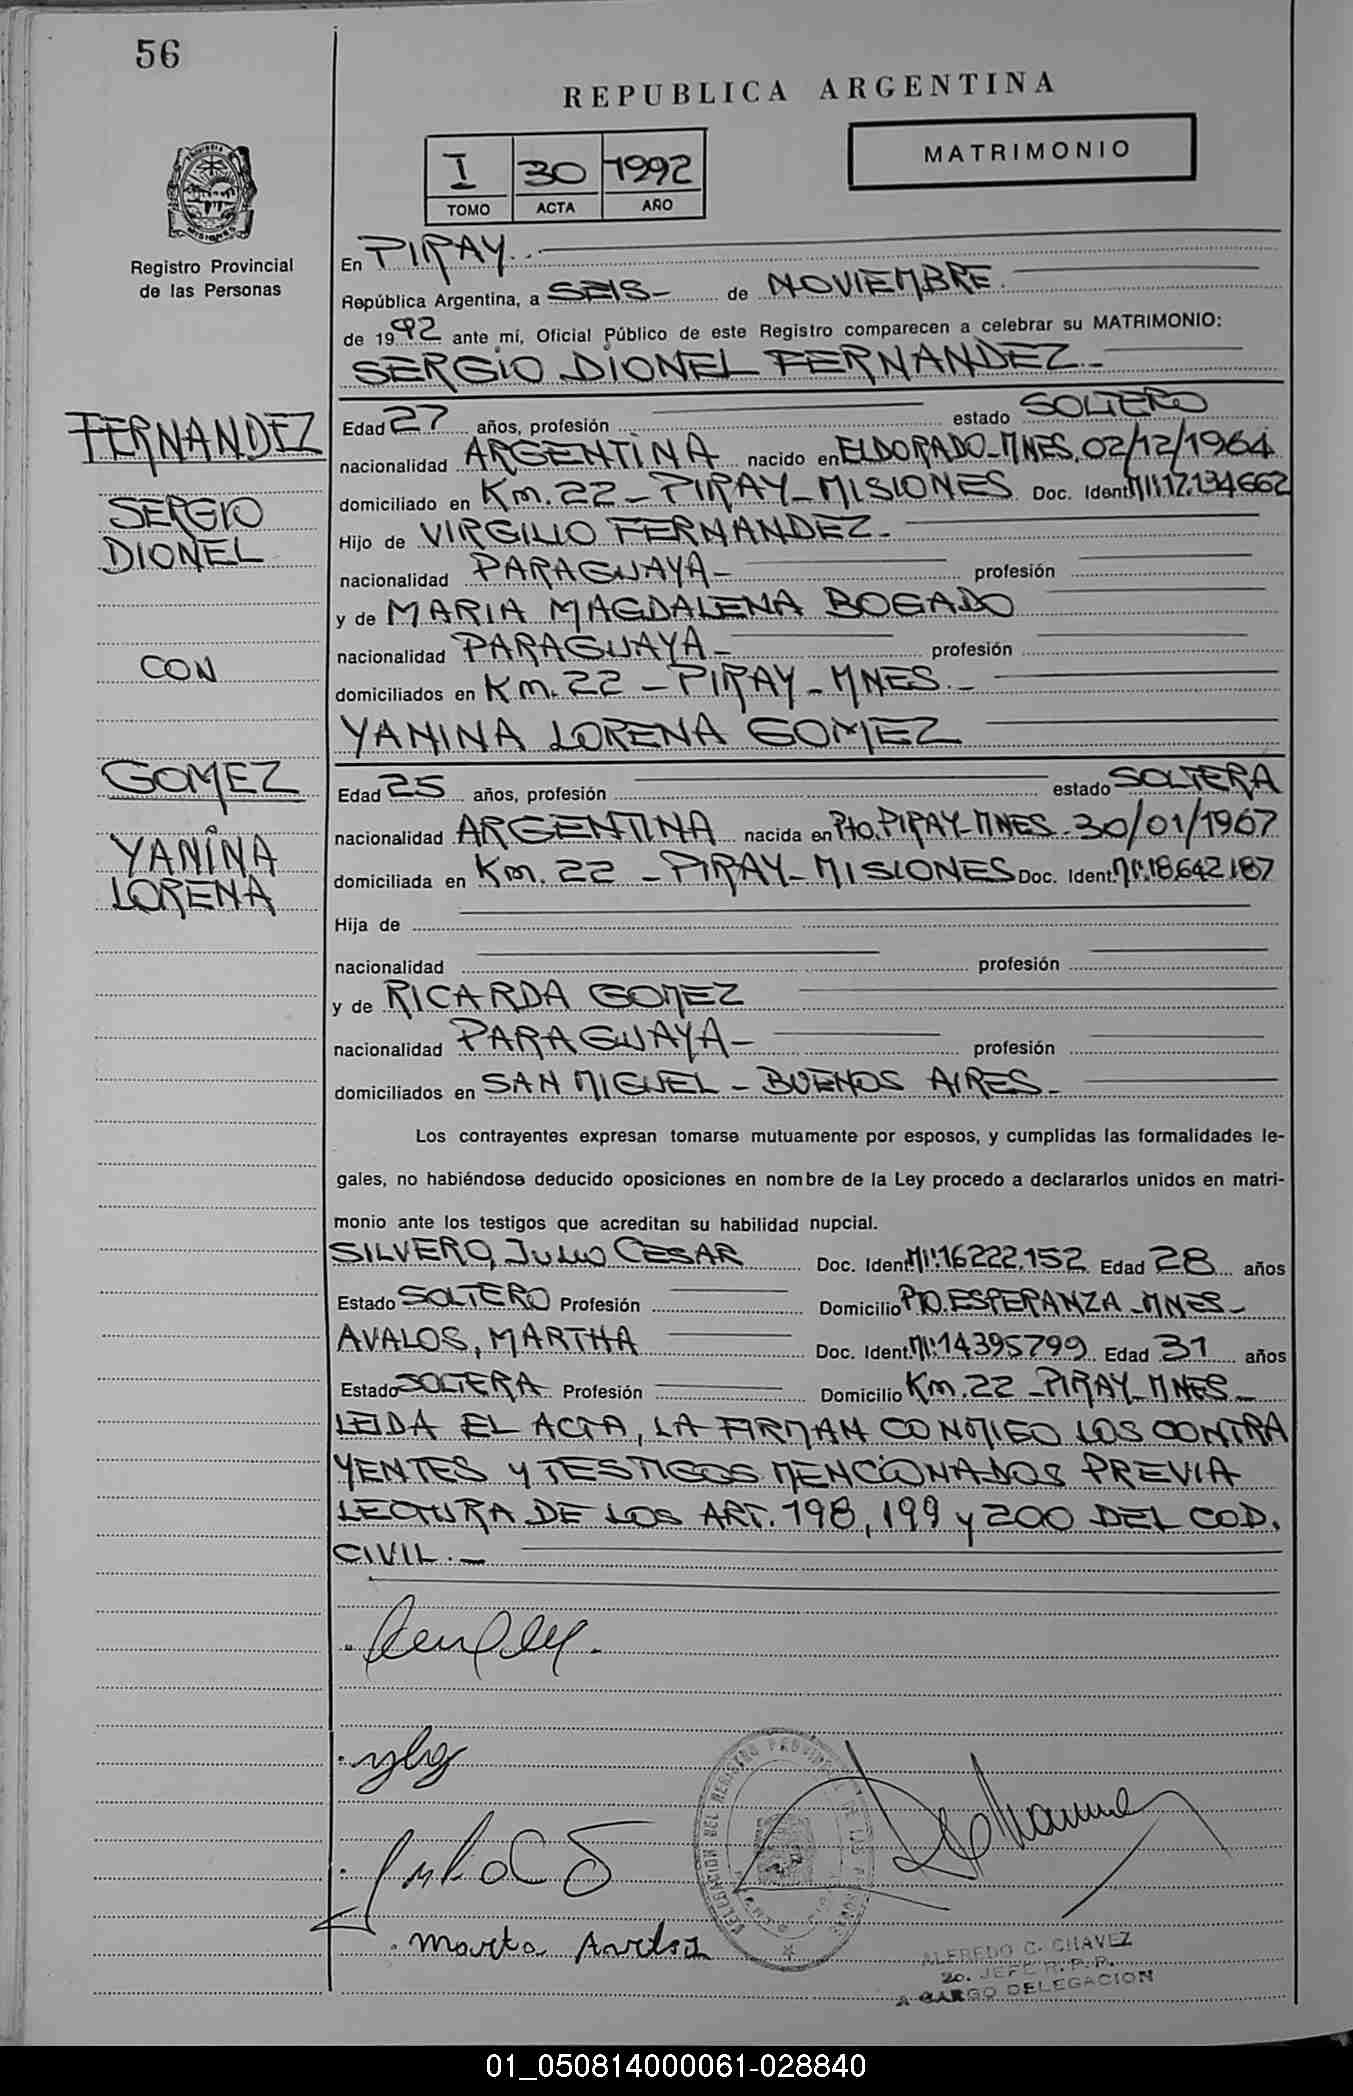 56
REPUBLICA ARGENTINA
I 30 1992
TOMO ACTA AÑO
MATRIMONIO
Registro Provincial
de las Personas
En PIRAY.
República Argentina, a SEIS- de NOVIEMBRE.
de 1992 ante mí, Oficial Público de este Registro comparecen a celebrar su MATRIMONIO:
SERGIO DIONEL FERNANDEZ-
FERNANDEZ
SERGIO
DIONEL
CON
GOMEZ
YANINA
LORENA
Edad 27 años, profesión estado SOLTERO
nacionalidad ARGENTINA nacido en ELDORADO-MNES, 02/12/1964
domiciliado en Km. 22 - PIRAY - MISIONES Doc. Ident MI:17.134662
Hijo de VIRGILIO FERNANDEZ-
nacionalidad PARAGUAYA- profesión
y de MARIA MAGDALENA BOGADO
nacionalidad PARAGUAYA- profesión
domiciliados en Km. 22 - PIRAY - MNES.-
YANINA LORENA GOMEZ
Edad 25 años, profesión estado SOLTERA
nacionalidad ARGENTINA nacida en Pto. PIRAY-MNES - 30/01/1967
domiciliada en Km. 22 - PIRAY - MISIONES Doc. Ident. MI:18.642.187
Hija de
nacionalidad profesión
y de RICARDA GOMEZ
nacionalidad PARAGUAYA- profesión
domiciliados en SAN MIGUEL - BUENOS AIRES-
Los contrayentes expresan tomarse mutuamente por esposos, y cumplidas las formalidades le-
gales, no habiéndose deducido oposiciones en nombre de la Ley procedo a declararlos unidos en matri-
monio ante los testigos que acreditan su habilidad nupcial.
SILVERO, JULIO CESAR Doc. Ident MI:16222.152 Edad 28 años
Estado SOLTERO Profesión Domicilio PTO. ESPERANZA - MNES-
AVALOS, MARTHA Doc. Ident. MI:14395799 Edad 31 años
Estado SOLTERA Profesión Domicilio Km. 22 - PIRAY - MNES-
LEIDA EL ACTA, LA FIRMAN CONMIGO LOS CONTRA
YENTES Y TESTIGOS MENCIONADOS PREVIA
LECTURA DE LOS ART. 198, 199 y 200 DEL COD.
CIVIL.-
DELEGACION DEL REGISTRO PROVINCIAL DE LAS PERSONAS
ALFREDO C. CHAVEZ
2o. JEFE R. P. P.
A CARGO DELEGACION
01_050814000061-028840